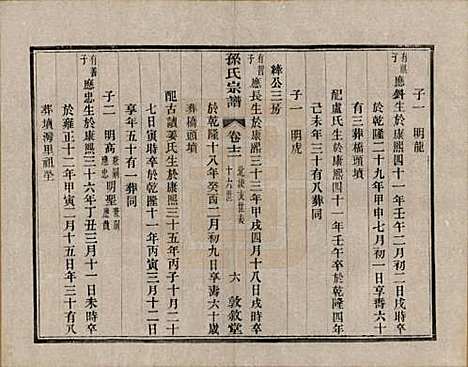 子一 明龍
有祖子 應斜生於康熙四十一年壬午二月初二日戌時卒
於乾隆二十九年甲申七月初一日享壽六十
有三葬橋頭墳
配盧氏生於康熙四十一年壬午卒於乾隆四年
己未年三十有八葬同
子一 明虎
綘公三房
有習子 應長生於康熙三十三年甲戌四月十八日戌時卒
孫氏宗譜 卷十二 十六世 六 敦敘堂
於乾隆十八年癸酉二月初九日享壽六十歲
葬橋頭墳
配古讀姜氏生於康熙三十五年丙子十月二十
七日寅時卒於乾隆十一年丙寅二月十二日
享年五十有一葬同
子二 明高 應忠兼嗣 明聖 應貴兼嗣
有習子 應忠生於康熙三十六年丁丑三月十一日未時卒
於雍正十二年甲寅二月十五日年三十有八
葬墳灣里祖塋